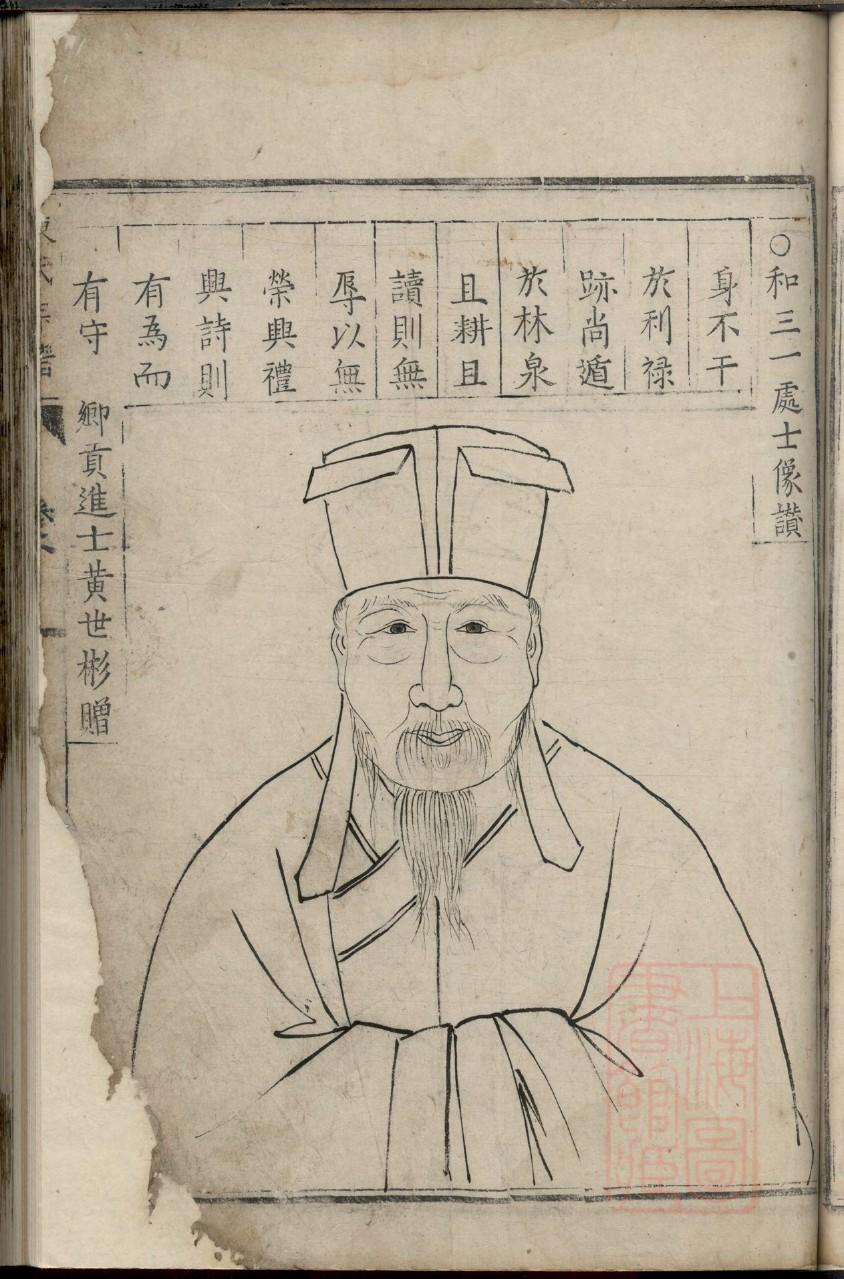 ○和三一處士像讃
身不干
於利禄
跡尚遁
於林泉
且耕且
讀則無
辱以無
榮興禮
興詩則
有為而
有守
鄉貢進士黄世彬贈
氏宗譜
上海圖
書館